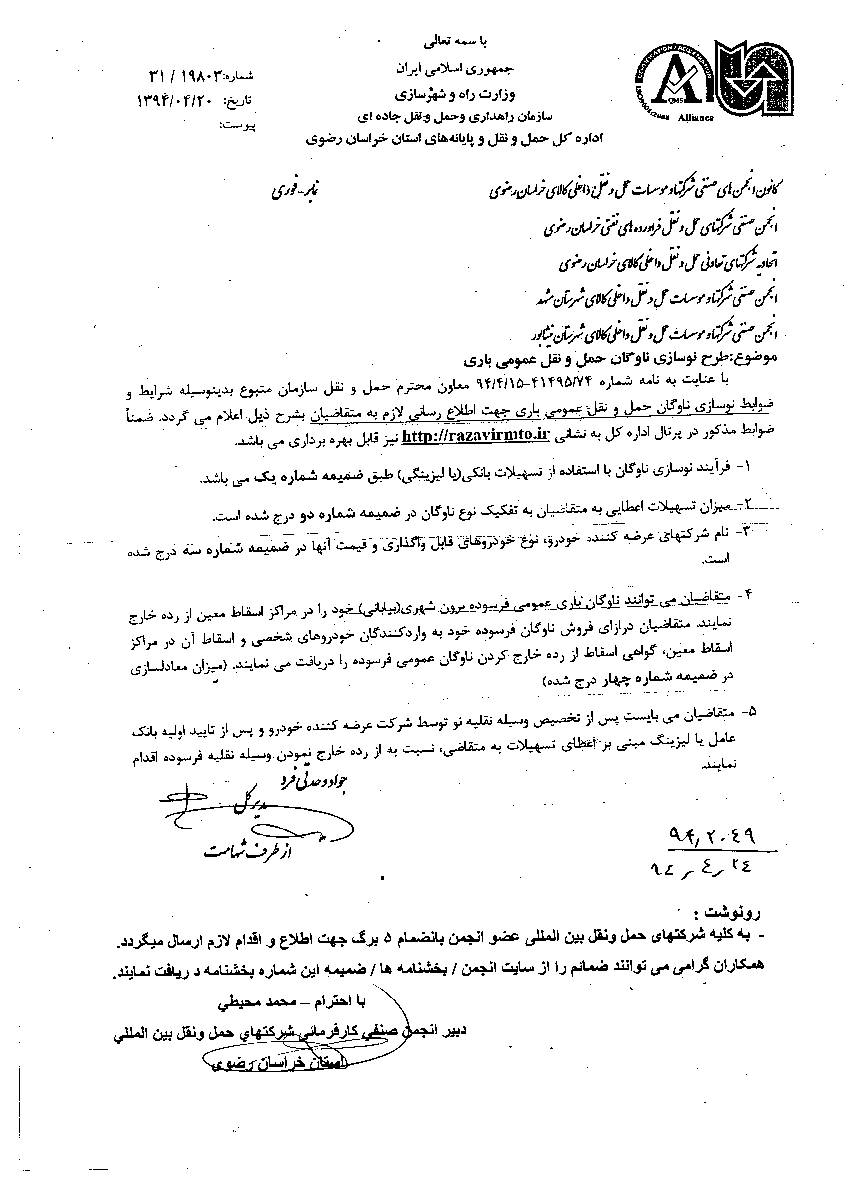 با سمه تعالی
جمهوری اسلامی ایران
وزارت راه و شهرسازی
سازمان راهداری وحمل ونقل جاده ای
اداره کل حمل و نقل و پایانه‌های استان خراسان رضوی
شماره: ۳۱ / ۱۹۸۰۳
تاریخ: ۱۳۹۴/۰۴/۲۰
پیوست:
QMS
Alliance
کانون انجمن های صنفی شرکتها و موسسات حمل و نقل داخلی کالای خراسان رضوی
نمابر - فوری
انجمن صنفی شرکتهای حمل و نقل فرآورده های نفتی خراسان رضوی
اتحادیه شرکتهای تعاونی حمل و نقل داخلی کالای خراسان رضوی
انجمن صنفی شرکتها و موسسات حمل و نقل داخلی کالای شهرستان مشهد
انجمن صنفی شرکتها و موسسات حمل و نقل داخلی کالای شهرستان نیشابور
موضوع:طرح نوسازی ناوگان حمل و نقل عمومی باری
با عنایت به نامه شماره ۴۱۴۹۵/۷۴-۹۴/۴/۱۵ معاون محترم حمل و نقل سازمان متبوع بدینوسیله شرایط و
ضوابط نوسازی ناوگان حمل و نقل عمومی باری جهت اطلاع رسانی لازم به متقاضیان بشرح ذیل اعلام می گردد. ضمناً
ضوابط مذکور در پرتال اداره کل به نشانی http://razavirmto.ir نیز قابل بهره برداری می باشد.
۱- فرآیند نوسازی ناوگان با استفاده از تسهیلات بانکی(یا لیزینگی) طبق ضمیمه شماره یک می باشد.
۲- میزان تسهیلات اعطایی به متقاضیان به تفکیک نوع ناوگان در ضمیمه شماره دو درج شده است.
۳- نام شرکتهای عرضه کننده خودرو، نوع خودروهای قابل واگذاری و قیمت آنها در ضمیمه شماره سه درج شده
است.
۴- متقاضیان می توانند ناوگان باری عمومی فرسوده برون شهری(بیابانی) خود را در مراکز اسقاط معین از رده خارج
نمایند. متقاضیان درازای فروش ناوگان فرسوده خود به واردکنندگان خودروهای شخصی و اسقاط آن در مراکز
اسقاط معین، گواهی اسقاط از رده خارج کردن ناوگان عمومی فرسوده را دریافت می نمایند. (میزان معادلسازی
در ضمیمه شماره چهار درج شده)
۵- متقاضیان می بایست پس از تخصیص وسیله نقلیه نو توسط شرکت عرضه کننده خودرو و پس از تایید اولیه بانک
عامل یا لیزینگ مبنی بر اعطای تسهیلات به متقاضی، نسبت به از رده خارج نمودن وسیله نقلیه فرسوده اقدام
نمایند.
جواد وحدتی فرد
مدیر کل
از طرف شهامت
۹۴٫۲۰۴۹
۹۴٫۴٫۲۴
رونوشت :
- به کلیه شرکتهای حمل ونقل بین المللی عضو انجمن بانضمام ۵ برگ جهت اطلاع و اقدام لازم ارسال میگردد.
همکاران گرامی می توانند ضمائم را از سایت انجمن / بخشنامه ها / ضمیمه این شماره بخشنامه د ریافت نمایند.
با احترام – محمد محیطی
دبیر انجمن صنفی کارفرمائی شرکتهای حمل ونقل بین المللی
استان خراسان رضوی